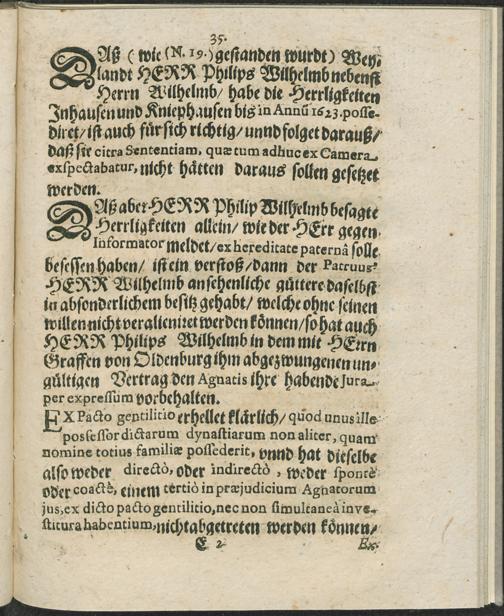 35.
DAß (wie (N. 19.) gestanden wurdt) Wey-
landt HERR Philips Wilhelmb nebenst
Herrn Wilhelmb/ habe die Herrligkeiten
Inhausen und Kniephausen bis in Annū 1623. posse-
diret/ ist auch für sich richtig/ unnd folget darauß/
daß sie citra Sententiam, quæ tum adhuc ex Camera
exspectabatur, nicht hätten daraus sollen gesetzet
werden.
DAß aber HERR Philip Wilhelmb besagte
Herrligkeiten allein/ wie der HErr gegen
Informator meldet/ ex hereditate paternâ solle
besessen haben/ ist ein verstoß/ dann der Patruus
HERR Wilhelmb ansehenliche güttere daselbst
in absonderlichem besitz gehabt/ welche ohne seinen
willen nicht veralieniret werden können/ so hat auch
HERR Philips Wilhelmb in dem mit HErrn
Graffen von Oldenburg ihm abgezwungenen un-
gültigen Vertrag den Agnatis ihre habende Jura
per expressum vorbehalten.
EX Pacto gentilitio erhellet klärlich/ quòd unus ille
possessor dictarum dynastiarum non aliter, quam
nomine totius familiæ possederit, unnd hat dieselbe
also weder directò, oder indirectò, weder spontè
oder coactè, einem tertiò in præjudicium Agnatorum
jus, ex dicto pacto gentilitio, nec non simultaneâ inve-
stitura habentium, nicht abgetreten werden können/
E 2 Ex